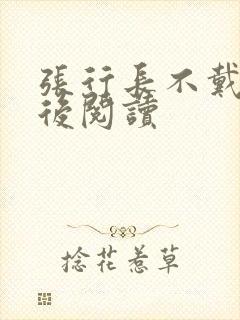 張行長不戴
後閱讀
捻花惹草